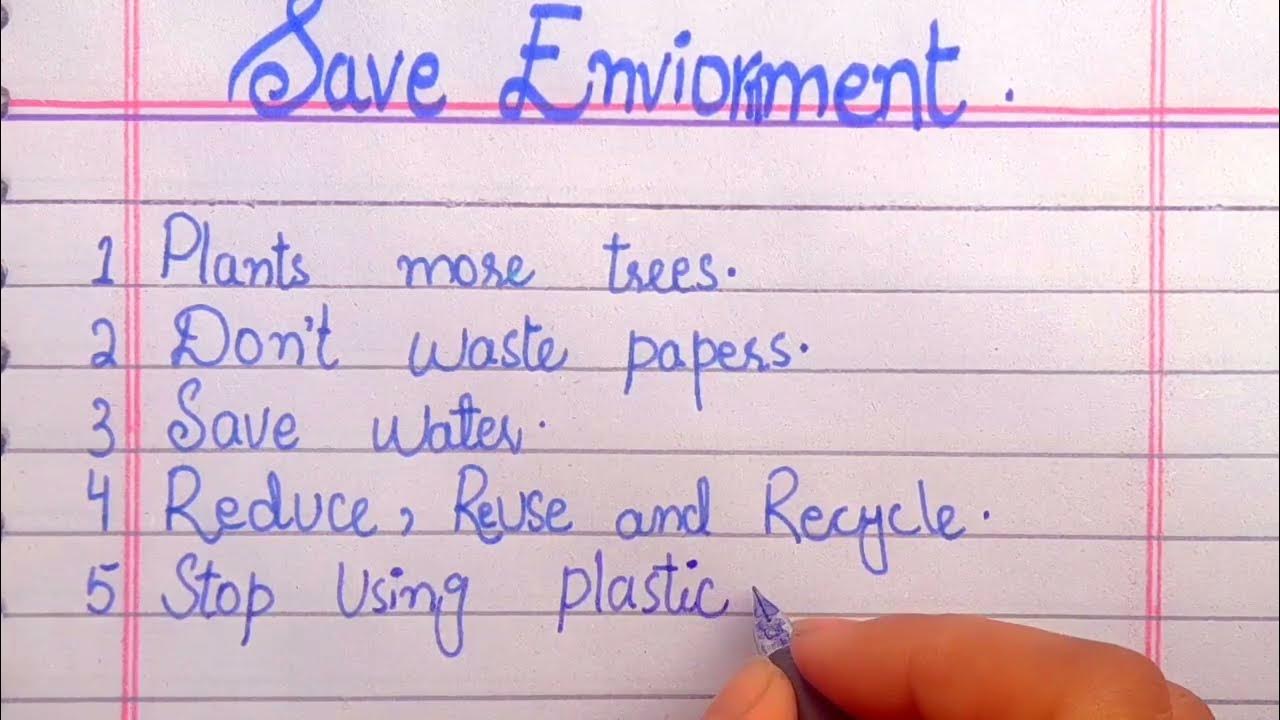 Save Enviornment.
1 Plants more trees.
2 Don't waste papers.
3 Save water.
4 Reduce, Reuse and Recycle.
5 Stop Using plastic